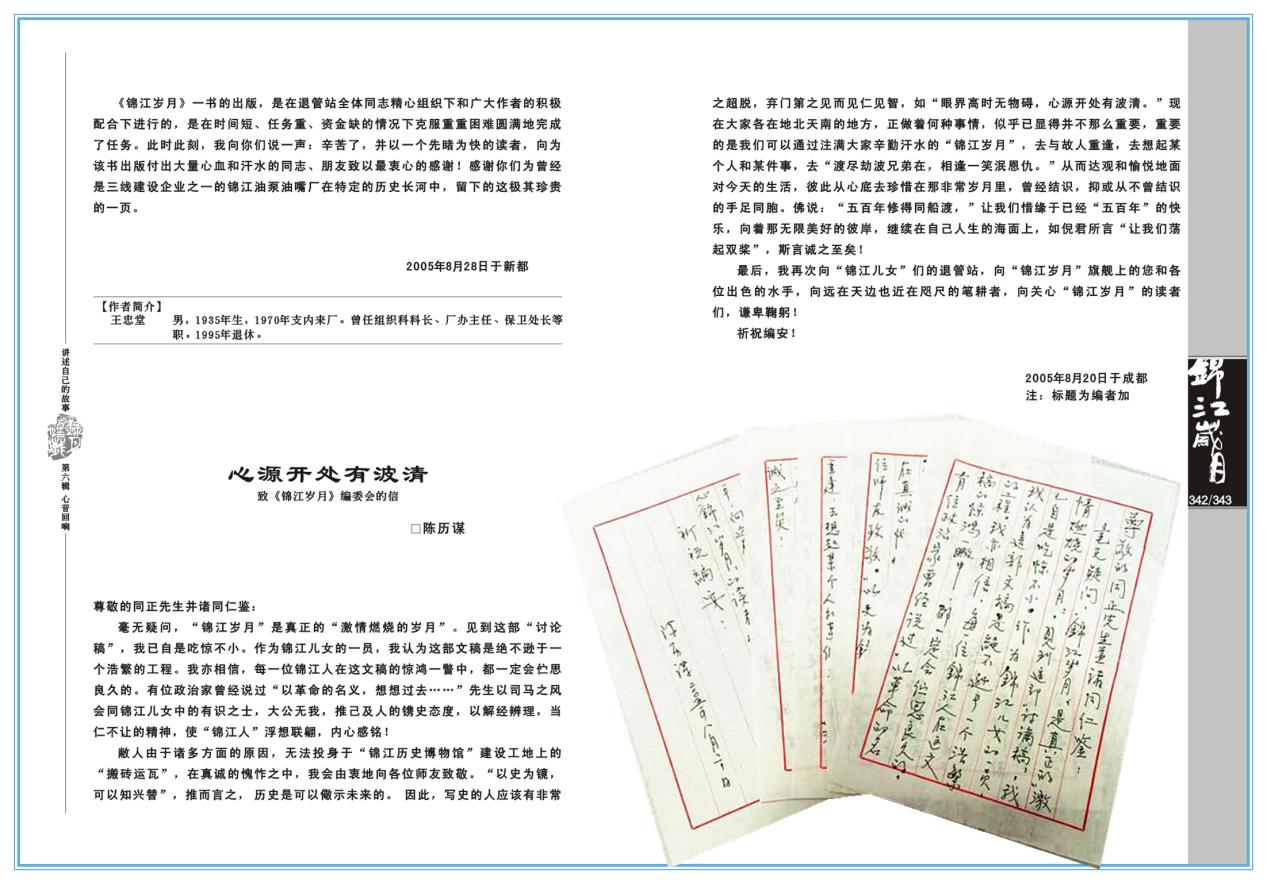 《锦江岁月》一书的出版，是在退管站全体同志精心组织下和广大作者的积极
配合下进行的，是在时间短、任务重、资金缺的情况下克服重重困难圆满地完成
了任务。此时此刻，我向你们说一声：辛苦了，并以一个先睹为快的读者，向为
该书出版付出大量心血和汗水的同志、朋友致以最衷心的感谢！感谢你们为曾经
是三线建设企业之一的锦江油泵油嘴厂在特定的历史长河中，留下的这极其珍贵
的一页。
2005年8月28日于新都
【作者简介】
王忠堂 男，1935年生，1970年支内来厂。曾任组织科科长、厂办主任、保卫处长等
职。1995年退休。
讲述自己的故事
第六辑 心音回响
心源开处有波清
致《锦江岁月》编委会的信
□陈历谋
尊敬的同正先生并诸同仁鉴：
毫无疑问，“锦江岁月”是真正的“激情燃烧的岁月”。见到这部“讨论
稿”，我已自是吃惊不小。作为锦江儿女的一员，我认为这部文稿是绝不逊于一
个浩繁的工程。我亦相信，每一位锦江人在这文稿的惊鸿一瞥中，都一定会伫思
良久的。有位政治家曾经说过“以革命的名义，想想过去……”先生以司马之风
会同锦江儿女中的有识之士，大公无我，推己及人的镌史态度，以解经辨理，当
仁不让的精神，使“锦江人”浮想联翩，内心感铭！
敝人由于诸多方面的原因，无法投身于“锦江历史博物馆”建设工地上的
“搬砖运瓦”，在真诚的愧怍之中，我会由衷地向各位师友致敬。“以史为镜，
可以知兴替”，推而言之，历史是可以儆示未来的。因此，写史的人应该有非常
之超脱，弃门第之见而见仁见智，如“眼界高时无物碍，心源开处有波清。”现
在大家各在地北天南的地方，正做着何种事情，似乎已显得并不那么重要，重要
的是我们可以通过注满大家辛勤汗水的“锦江岁月”，去与故人重逢，去想起某
个人和某件事，去“渡尽劫波兄弟在，相逢一笑泯恩仇。”从而达观和愉悦地面
对今天的生活，彼此从心底去珍惜在那非常岁月里，曾经结识，抑或从不曾结识
的手足同胞。佛说：“五百年修得同船渡，”让我们惜缘于已经“五百年”的快
乐，向着那无限美好的彼岸，继续在自己人生的海面上，如倪君所言“让我们荡
起双桨”，斯言诚之至矣！
最后，我再次向“锦江儿女”们的退管站，向“锦江岁月”旗舰上的您和各
位出色的水手，向远在天边也近在咫尺的笔耕者，向关心“锦江岁月”的读者
们，谦卑鞠躬！
祈祝编安！
2005年8月20日于成都
注：标题为编者加
尊敬的同正先生并诸同仁鉴：
毫无疑问，“锦江岁月”是真正的“激
情燃烧的岁月”。见到这部“讨论稿”，我
已自是吃惊不小。作为锦江儿女的一员，
我认为这部文稿是绝不逊于一个浩繁
的工程。我亦相信，每一位锦江人在这文
稿的惊鸿一瞥中，都一定会伫思良久的。
有位政治家曾经说过“以革命的名
在真诚的
位师友致敬。“以史为镜
重逢，去想起某个人和某件
诚之至矣！
心锦江岁月”的读者
祈祝编安！
錦江歲月
342/343